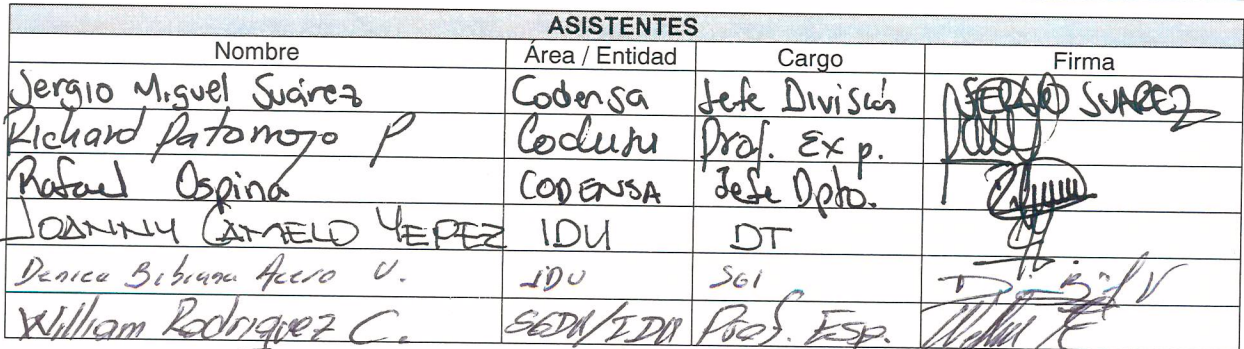 ASISTENTES
Nombre Área / Entidad Cargo Firma
Sergio Miguel Suárez Codensa Jefe División SERGIO SUAREZ
Richard Patarroyo P Codensa Prof. Exp.
Rafael Ospina CODENSA Jefe Dpto.
JOANNY CAMELO YEPEZ IDU DT
Denice Bibiana Acero V. IDU SGI
William Rodriguez C. SGDU/IDU Prof. Esp.